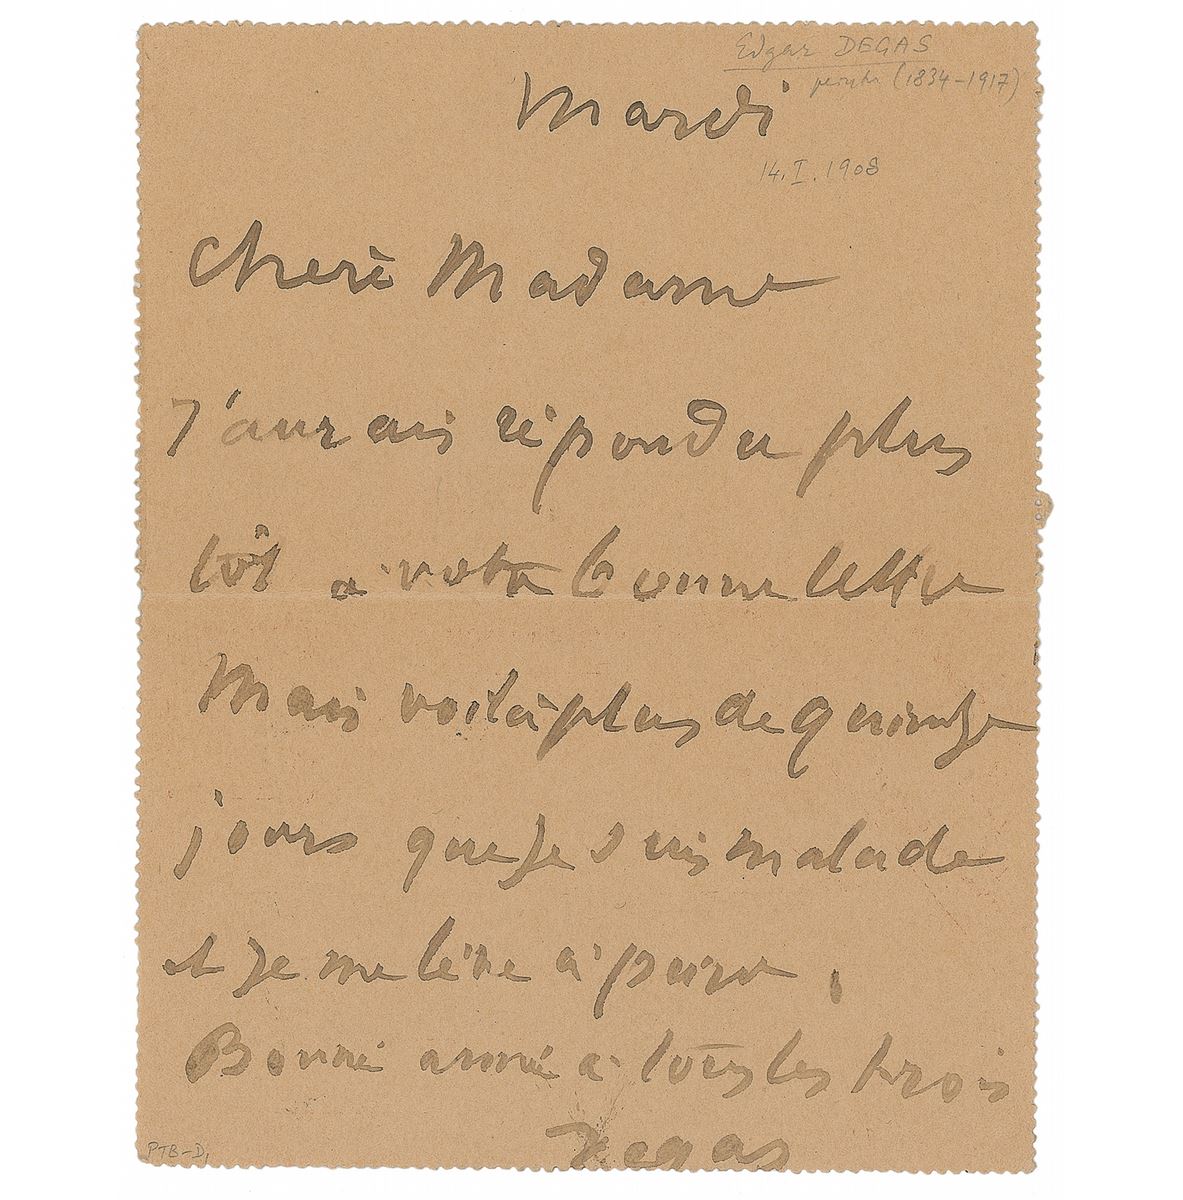 Edgar DEGAS
(1834-1917)
Mardi
14.I.1908
Chere Madame
J'aurais répondu plus
tôt à votre bonne lettre
Mais voilà plus de quinze
jours que je suis malade
et je me lève à peine.
Bonne année à tous les trois
Degas
PTB-D1